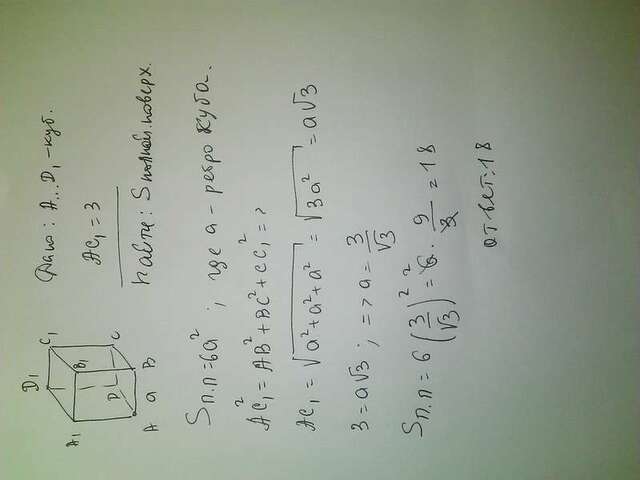 Дано: A...D₁ – куб.
AC₁ = 3
Найти: Sполной поверх.
D₁ C₁
A₁ B₁
D C
A a B
Sп.п = 6a²; где a – ребро куба.
AC₁² = AB² + BC² + CC₁² =>
AC₁ = √(a² + a² + a²) = √(3a²) = a√3
3 = a√3; => a = 3/√3
Sп.п = 6(3/√3)² = 6 · 9/3 = 18
ответ: 18